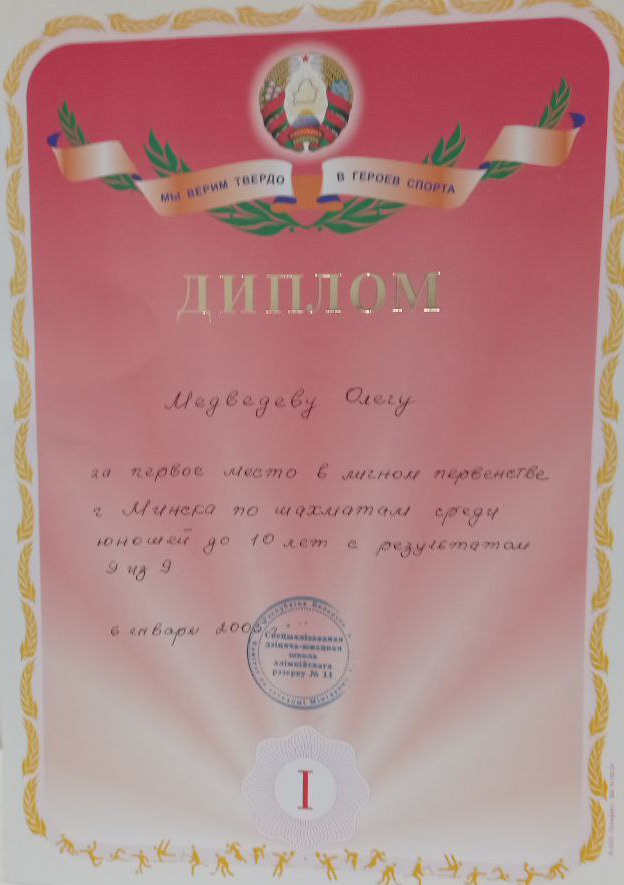 МЫ ВЕРИМ ТВЕРДО В ГЕРОЕВ СПОРТА
ДИПЛОМ
Медведеву Олегу
за первое место в личном первенстве
г Минска по шахматам среди
юношей до 10 лет с результатом
9 из 9.
6 января
Рэспубліка Беларусь
Спецыялізаваная
дзіцяча-юнацкая
школа
алімпійскага
рэзерву № 11
I